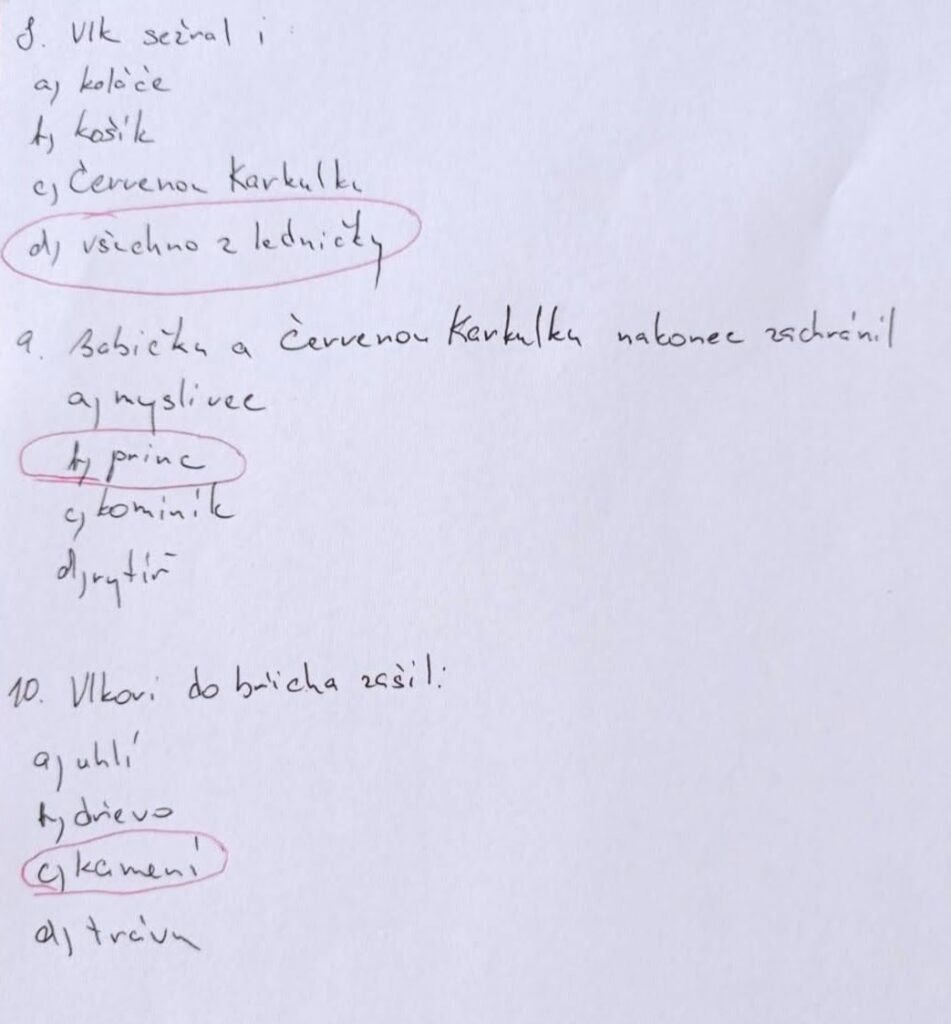 8. Vlk sežral i
a) koláče
b) košík
c) Červenou Karkulku
d) všechno z ledničky
9. Babičku a Červenou Karkulku nakonec zachránil
a) myslivec
b) princ
c) kominík
d) rytíř
10. Vlkovi do břicha zašil:
a) uhlí
b) dřevo
c) kamení
d) trávu